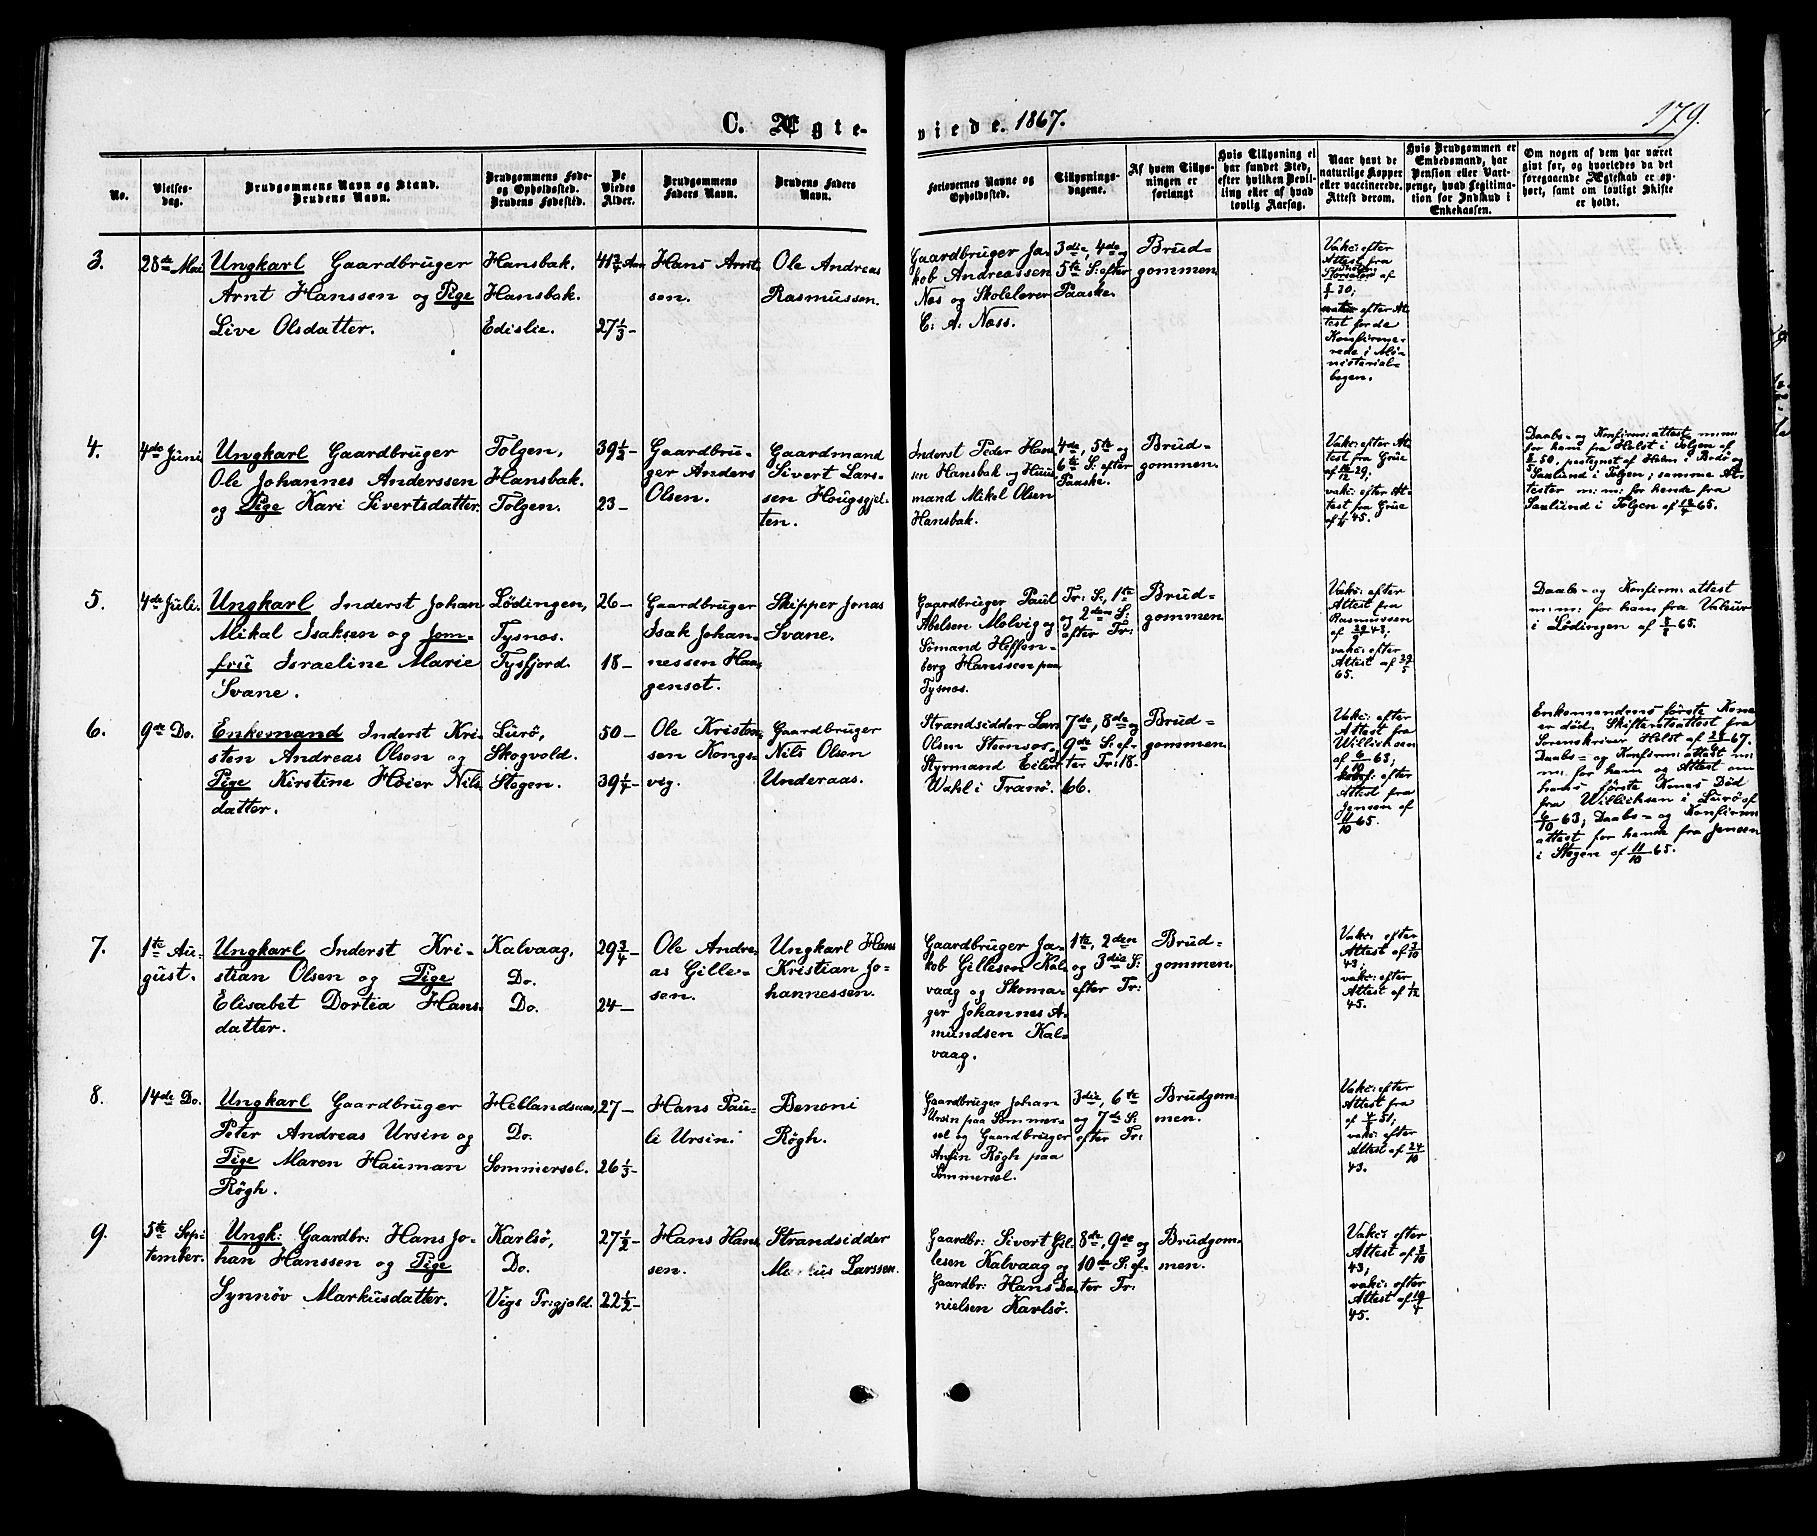 C. Ægteviede. 1867.
179.
No.
Vielsesdag.
Brudgommens Navn og Stand.
Brudens Navn.
Brudgommens Føde- og Opholdssted.
Brudens Fødested.
De Viedes Alder.
Brudgommens Faders Navn.
Brudens Faders Navn.
Forlovernes Navne og Opholdssted.
Tillysningsdagene.
Af hvem Tillysningen er forlangt
Hvis Tillysning ei har fundet Sted, efter hvilken Bevilling eller af hvad lovlig Aarsag.
Naar havt de naturlige Kopper eller vaccinerede. Attest derom.
Hvis Brudgommen er Embedsmand, har Pension eller Vartpenge, hvad Legitimation for Indskud i Enkekassen.
Om nogen af dem har været gift før, og hvorledes da det foregaaende Ægteskab er ophørt, samt om lovligt Skifte er holdt.
3.
28de Mai
Ungkarl Gaardbruger
Arnt Hanssen og Pige
Live Olsdatter.
Hansbak.
Hansbak.
Edislie.
41 3/4 Aar
27 1/3 -
Hans Arnt-
sen.
Ole Andreas
Rasmussen.
Gaardbruger Ja-
kob Andreassen
Næs og Skolelærer
E. A. Næss.
3die, 4de og
5te S: efter
Paaske.
Brud-
gommen
Vakc: efter
Attest fra
Storsater af
30;
vakc: efter At-
test for de
Konfirme-
rede i Mi-
nisterial-
bogen.
4.
4de Juni
Ungkarl Gaardbruger
Ole Johannes Anderssen
og Pige Kari Sivertsdatter.
Tolgen,
Hansbak.
Tolgen.
39 1/2 -
23 -
Gaardbru-
ger Anders
Olsen.
Gaardmand
Sivert Lars-
sen Hougsgjel-
ten.
Inderst Peder Hans-
sen Hansbak og Huus-
mand Mikel Olsen
Hansbak.
4de, 5te og
6te S: efter
Paaske.
Brud-
gommen.
Vakc: efter At-
test fra Grüe
af 29;
vakc: efter At-
test fra Grüe
af 45.
Daabs- og Konfirm: attest m: m:
for ham fra Holst i Tolgen af
50, paategnet af Holm i Bodø og
Saxlund i Tolgen; samme At-
tester m: m: for hende fra
Saxlund i Tolgen af 65.
5.
4de Juli.
Ungkarl Inderst Johan
Mikal Isaksen og Jom-
fru Israeline Marie
Svane.
Lødingen,
Tysnæs.
Tysfjord.
26 -
18 -
Gaardbruger
Isak Johan-
nessen Haa-
genset.
Skipper Jonas
Svane.
Gaardbruger Paul
Abelsen Molvig og
Sømand Heffen-
berg Hanssen paa
Tysnæs.
Tr: S:, 1te
og 2den S:
efter Tr:
Brud-
gommen
Vakc: efter
Attest fra
Rasmussen
af 43;
vakc: efter
Attest af
65.
Daabs- og Konfirm: attest
m: m: for ham fra Valeur
i Lødingen af 65.
6.
9de Do.
Enkemand Inderst Kri-
sten Andreas Olsen og
Pige Kirstine Høier Nils-
datter.
Lurø,
Skogvold.
Stegen.
50 -
39 1/4 -
Ole Kristen-
sen Kongs-
vig.
Gaardbruger
Nils Olsen
Underaas.
Strandsidder Lars
Olsen Stensøe
Styrmand Eilert
Wahl i Tranø.
7de, 8de og
9de S: ef-
ter Tr: 18-
66.
Brud-
gommen.
Vakc: efter
Attest fra
Willichsen
af 6/10 63;
vakc: efter
Attest fra
Jensen af
11/10 65.
Enkemandens første Kone
er død. Skifteretsattest fra
Sorenskriver Holst af 67.
Daabs- og Konfirm: Attest m:
m: for ham og Attest om
hans første Kones Død
fra Willichsen i Lurø af
6/10 63; Daabs- og Konfirm:
attest for hende fra Jensen
i Stegen af 11/10 65.
7.
1te Au-
gust.
Ungkarl Inderst Kri-
stian Olsen og Pige
Elisabet Dortea Hans-
datter.
Kalvaag,
Do.
Do.
29 3/4 -
24 -
Ole Andre-
as Gille-
sen.
Ungkarl Hans
Kristian Jo-
hannessen.
Gaardbruger Ja-
kob Gillesen Kal-
vaag og Skoma-
ger Johannes A-
mundsen Kal-
vaag.
1te, 2den
og 3die S:
efter Tr:
Brud-
gommen.
Vakc: efter
Attest af 3/10
43;
vakc: efter
Attest af
45.
8.
14de Do.
Ungkarl Gaardbruger
Peter Andreas Ursin og
Pige Maren Hauman
Røgh.
Heblandsaas,
Do.
Sommersel.
27 -
26 1/3 -
Hans Pau-
li Ursin.
Benoni
Røgh.
Gaardbruger Johan
Ursin paa Sommer-
sel og Gaardbruger
Anfin Røgh paa
Sommersel.
3die, 6te
og 7de S:
efter Tr:
Brudgom-
men.
Vakc: efter
Attest fra
af 51;
vakc: efter
Attest af 24/10
43.
9.
5te Sep-
tember.
Ungk: Gaardbr: Hans Jo-
han Hanssen og Pige
Synnøv Markusdatter.
Karlsø,
Do.
Vigs Pr:gjeld.
27 1/2 -
22 1/2 -
Hans Hans-
sen.
Strandsidder
Markus Larssen.
Gaardbr: Sivert Gil-
lesen Kalvaag og
Gaardbr: Hans Da-
nielsen Karlsø.
8de, 9de og
10de S: ef-
ter Tr:
Brudgom-
men.
Vakc: efter
Attest af 3/10
43;
vakc: efter
Attest af 19/4
45.